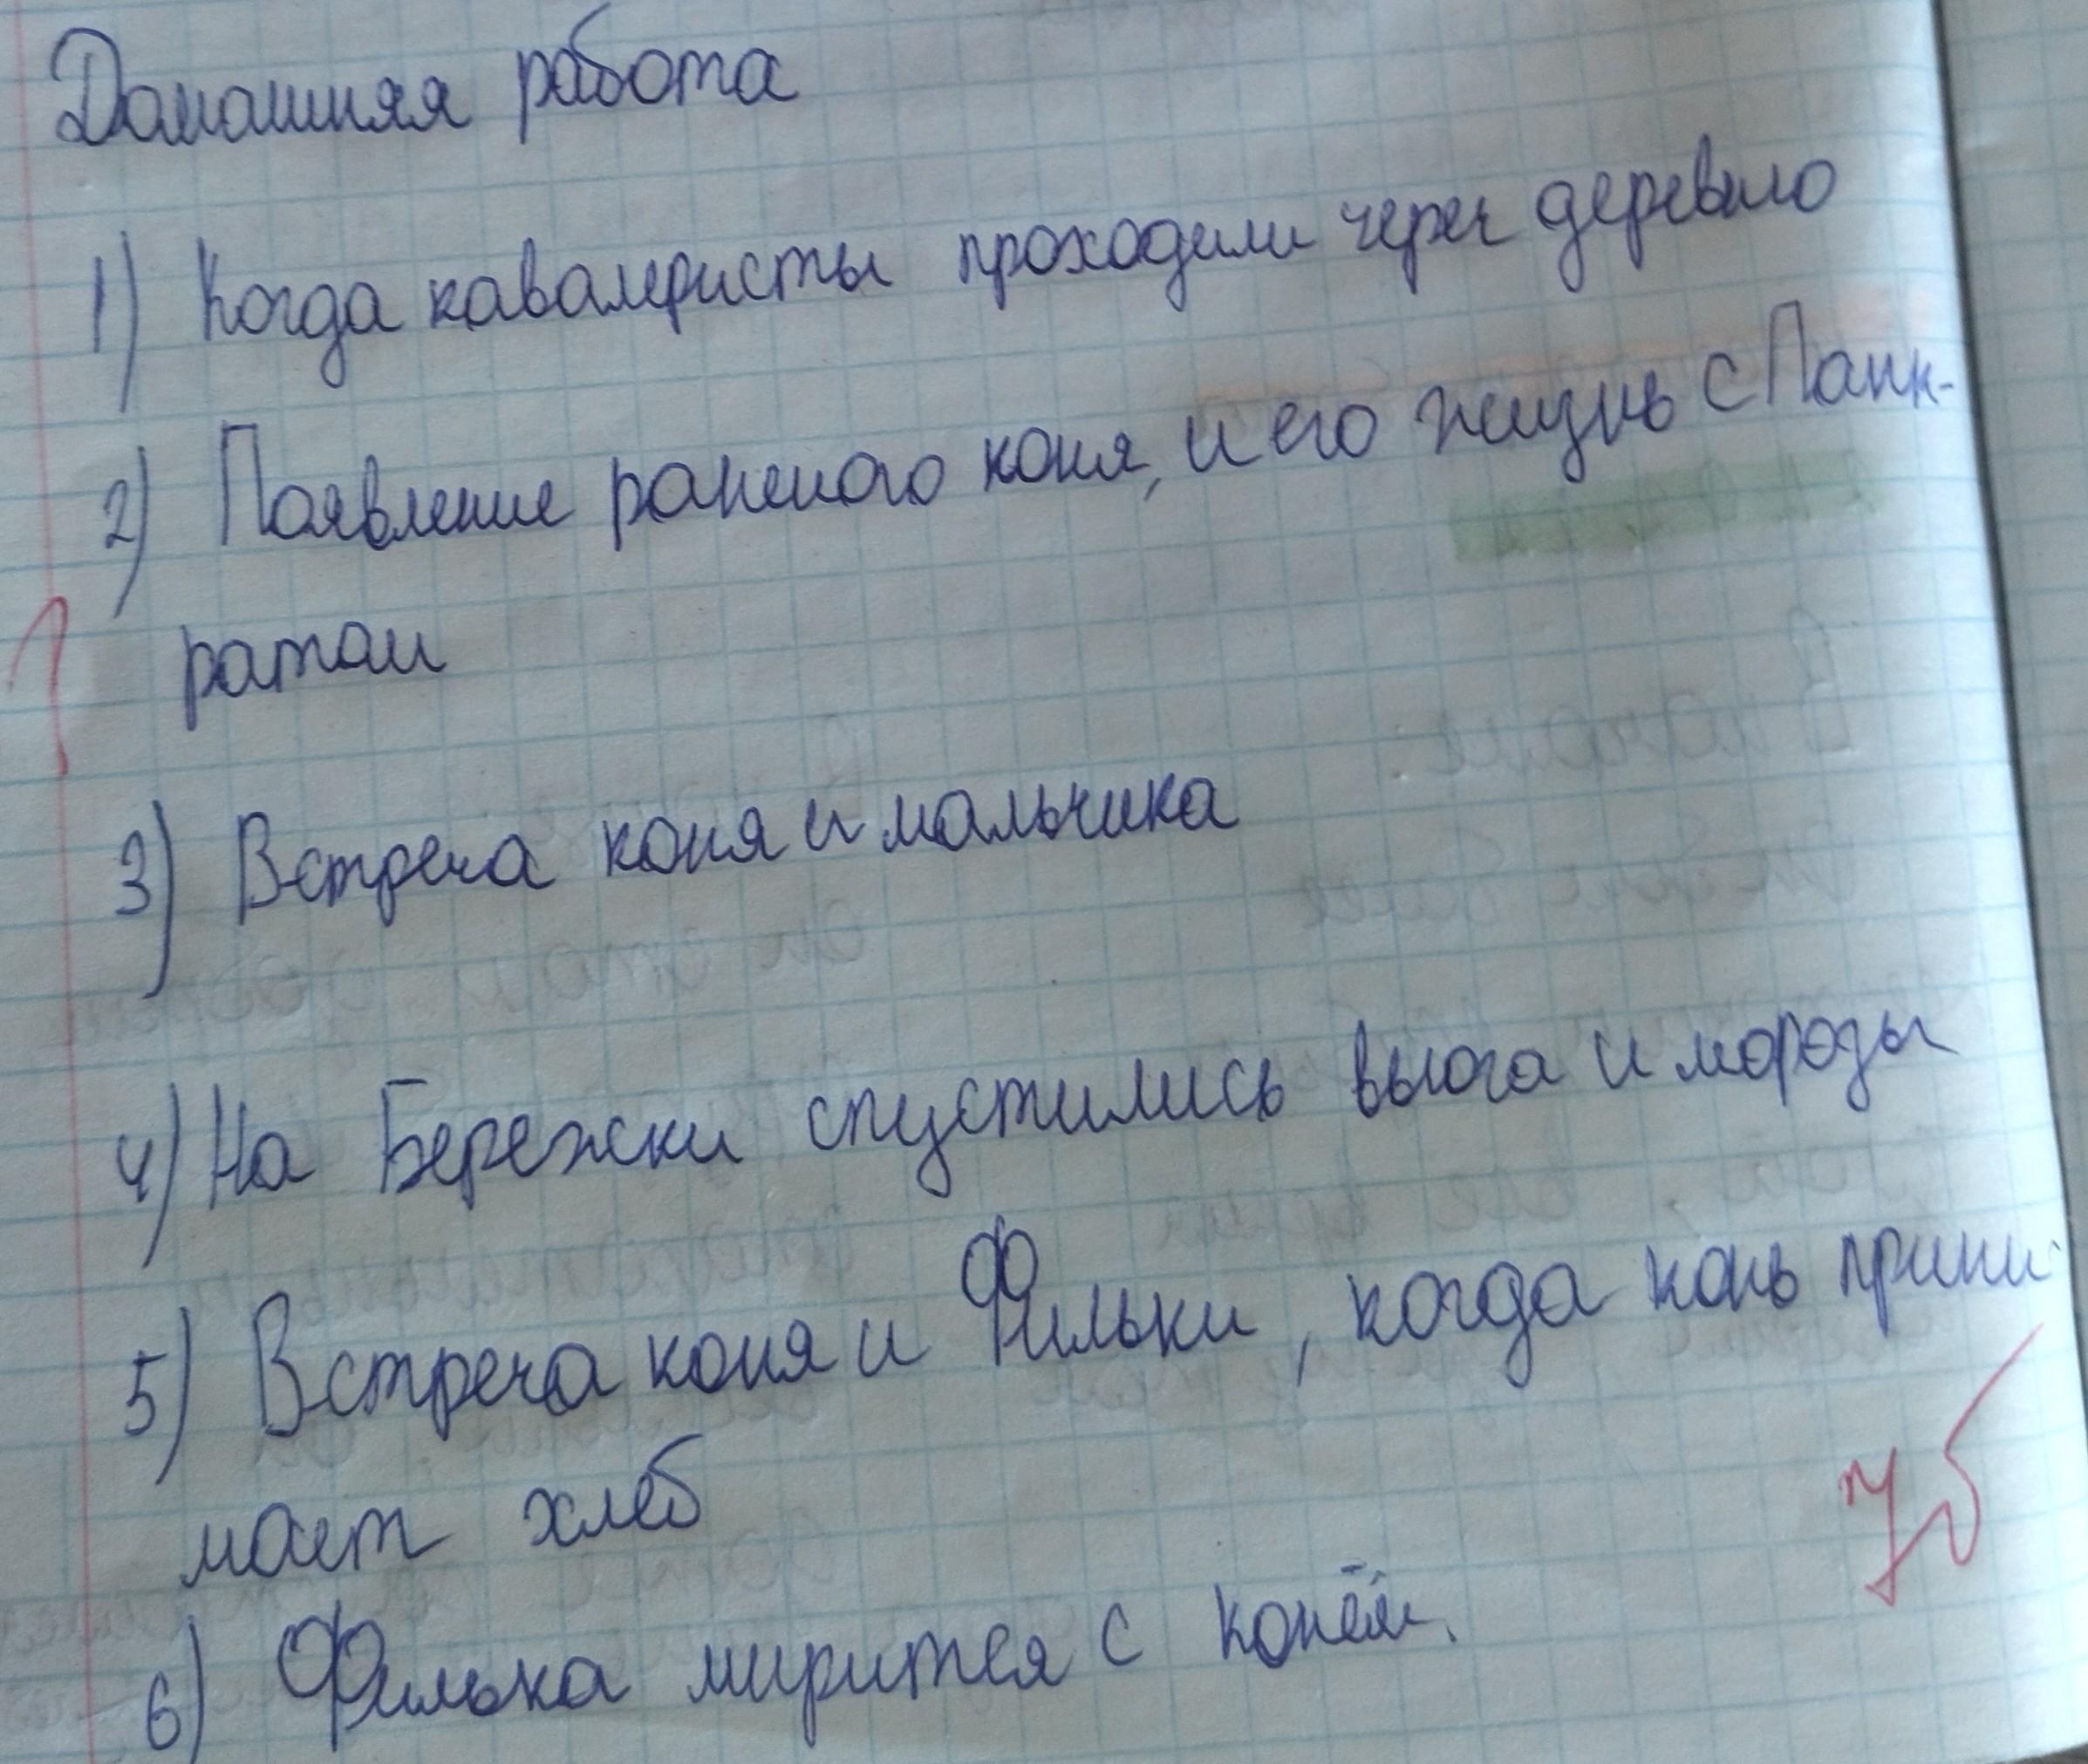 Домашняя работа
1) Когда кавалеристы проходили через деревню
2) Появление раненого коня, и его жизнь с Панк-
ратом
3) Встреча коня и мальчика
4) На Бережки спустились вьюга и морозы
5) Встреча коня и Фильки, когда конь прини-
мает хлеб
6) Филька мирится с конём.